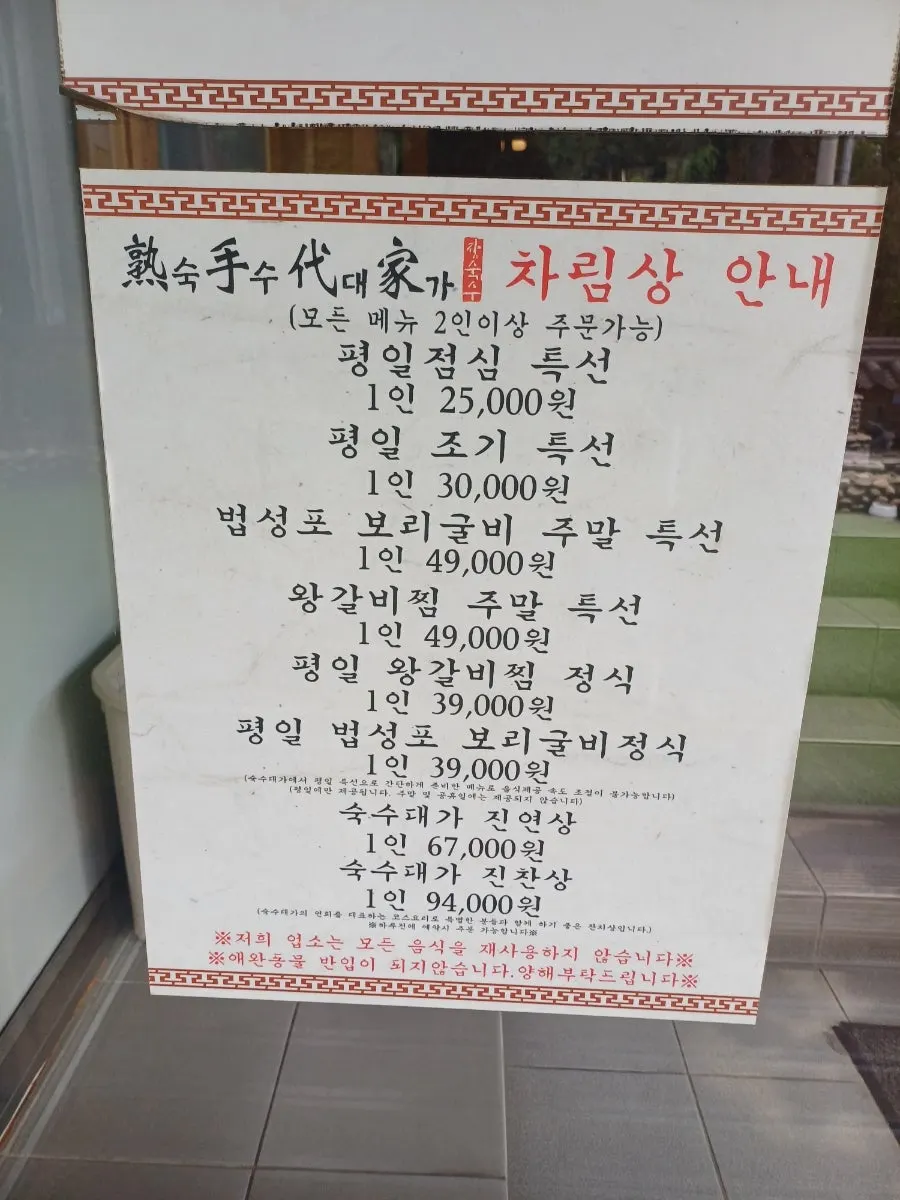 熟숙手수代대家가 장숙수 차림상 안내
(모든 메뉴 2인이상 주문가능)
평일점심 특선
1인 25,000원
평일 조기 특선
1인 30,000원
법성포 보리굴비 주말 특선
1인 49,000원
왕갈비찜 주말 특선
1인 49,000원
평일 왕갈비찜 정식
1인 39,000원
평일 법성포 보리굴비정식
1인 39,000원
(숙수대가에서 평일 특선으로 간단하게 준비한 메뉴로 음식제공 속도 조절이 불가능합니다)
(평일에만 제공됩니다. 주말 및 공휴일에는 제공되지 않습니다)
숙수대가 진연상
1인 67,000원
숙수대가 진찬상
1인 94,000원
(숙수대가의 연회를 대표하는 코스요리로 특별한 분들과 함께 하기 좋은 잔치상입니다.)
※하루전에 예약시 주문 가능합니다※
※저희 업소는 모든 음식을 재사용하지 않습니다※
※애완동물 반입이 되지않습니다.양해부탁드립니다※